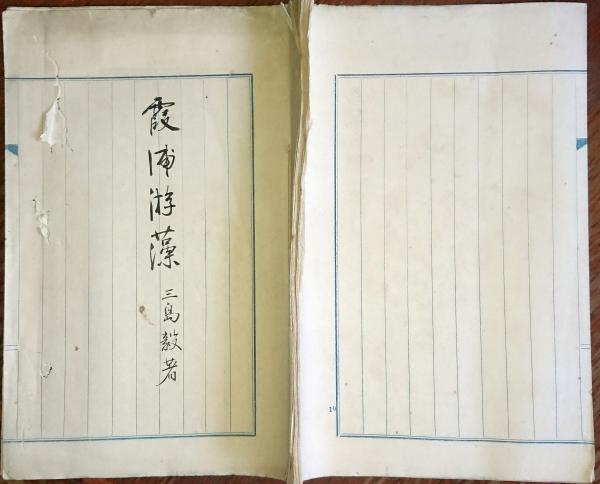 霞浦游藻
三島毅著